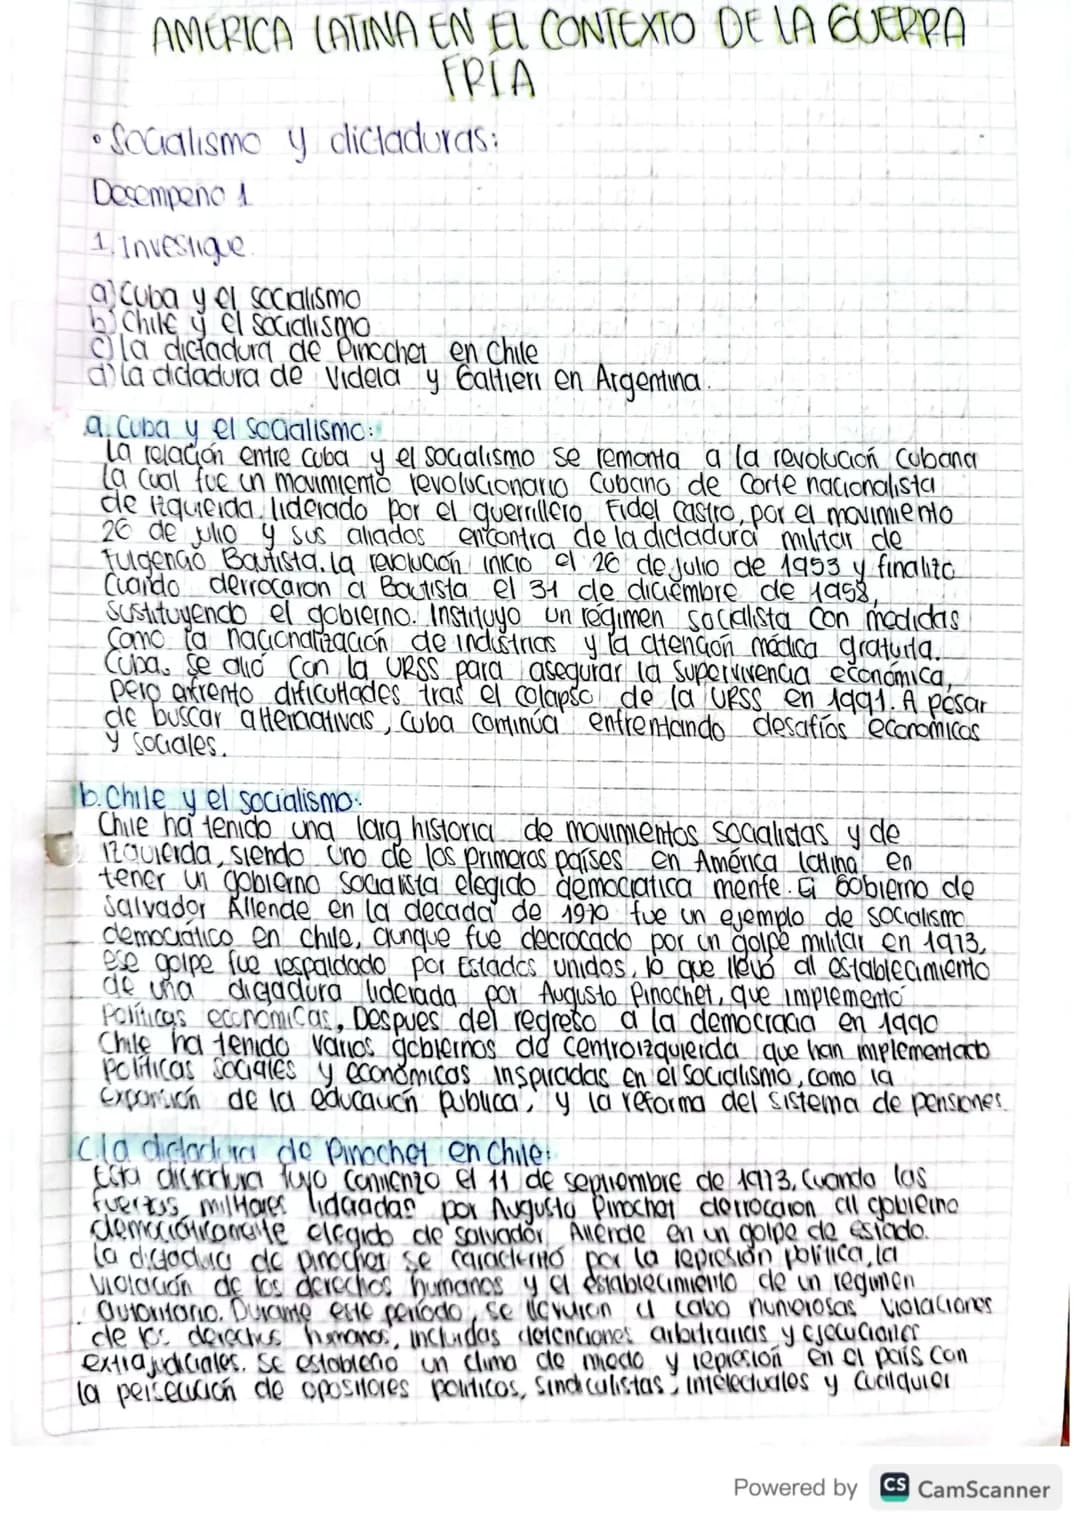 AMÉRICA LATINA EN EL CONTEXTO DE LA GUERRA
FRÍA
• Socialismo y dictaduras:
Desempeño 1
1. Investigue.
a) Cuba y el socialismo
b) Chile y el socialismo
c) la dictadura de Pinochet en Chile
d) la dictadura de Videla y Galtieri en Argentina.
a. Cuba y el socialismo:
La relación entre cuba y el socialismo se remonta a la revolución cubana
la cual fue un movimiento revolucionario Cubano de Corte nacionalista
de izquierda, liderado por el guerrillero Fidel Castro, por el movimiento
26 de julio y sus aliados encontra de la dictadura militar de
Fulgencio Bautista. la revolución inicio el 26 de julio de 1953 y finalizo
Cuando derrocaron a Bautista el 31 de diciembre de 1958,
Sustituyendo el gobierno. Instituyo un régimen socialista con medidas
Como la nacionalización de industrias y la atención médica gratuita.
Cuba, se alió con la URSS para asegurar la Supervivencia económica,
pero enfrento dificultades tras el colapso de la URSS en 1991. A pesar
de buscar alternativas, Cuba continúa enfrentando desafíos economicos
y sociales.
b. Chile y el socialismo:
Chile ha tenido una larg historia de movimientos socialistas y de
izquierda, siendo uno de los primeros países en América latina en
tener un gobierno socialista elegido democratica mente. El Gobierno de
Salvador Allende en la decada de 1970 fue un ejemplo de socialismo
democrático en Chile, aunque fue derrocado por un golpe militar en 1973,
ese golpe fue respaldado por Estados unidos, lo que llevó al establecimiento
de una dictadura liderada por Augusto Pinochet, que implementó
Políticas economicas, Despues del regreso a la democracia en 1990
Chile ha tenido varios gobiernos de centroizquierda que han implementado
políticas sociales y económicas inspiradas en el socialismo, como la
expansión de la educación publica, y la reforma del sistema de pensiones.
C. la dictadura de Pinochet en Chile:
Esta dictadura tuvo comienzo el 11 de septiembre de 1973, Cuando las
fuerzas militares lideradas por Augusto Pinochet derrocaron al gobierno
democráticamente elegido de Salvador Allende en un golpe de estado.
la dictadura de pinochet se caracterizó por la represión política, la
violación de los derechos humanos y el establecimiento de un regimen
autoritario. Durante este periodo, se llevaron a cabo numerosas violaciones
de los derechos humanos, incluidas detenciones arbitrarias y ejecuciones
extrajudiciales. Se estableció un clima de miedo y represión en el país con
la persecución de opositores políticos, Sindicalistas, intelectuales y cualquier
Powered by CS CamScanner